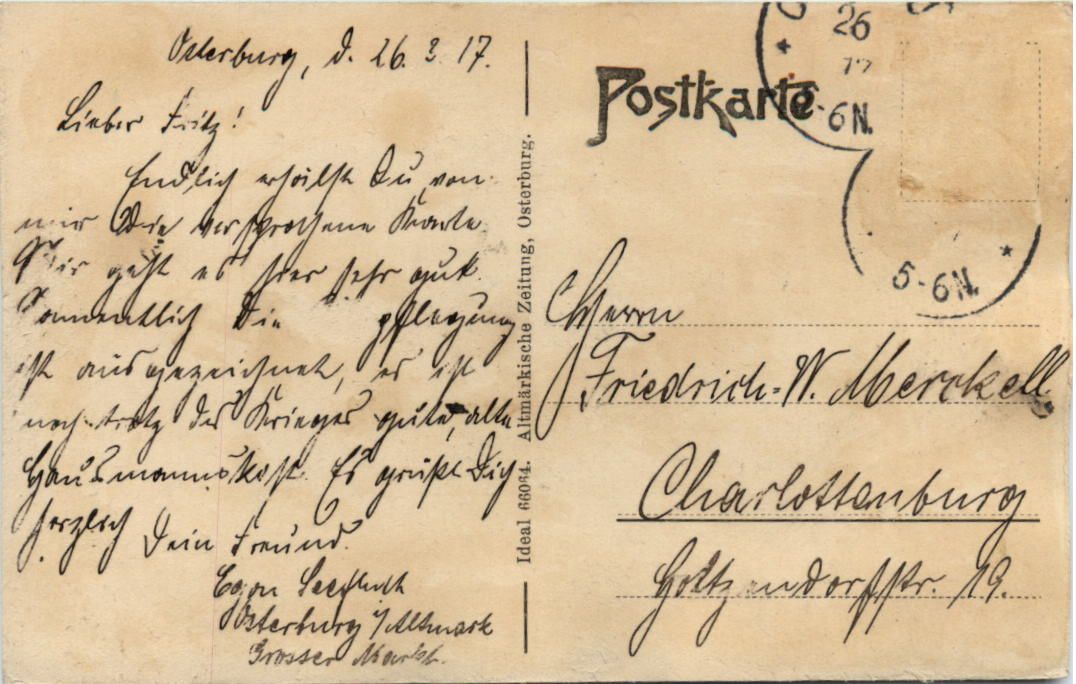 Osterburg, d. 26. 3. 17.
Lieber Fritz!
Endlich erhälst Du von
mir die versprochene Karte.
Mir geht es hier sehr gut.
Namentlich die pflegung
ist ausgezeichnet, es ist
noch trotz des Krieges gute, alte
Hausmannskost. Es grüßt Dich
herzlich Dein Freund.
Egon
Osterburg i/Altmark
Grosser Markt.
Ideal 66064. Altmärkische Zeitung, Osterburg.
Postkarte
26
6N.
5-6N.
Herrn
Friedrich-W. Merckell
Charlottenburg
Holtzendorffstr. 19.